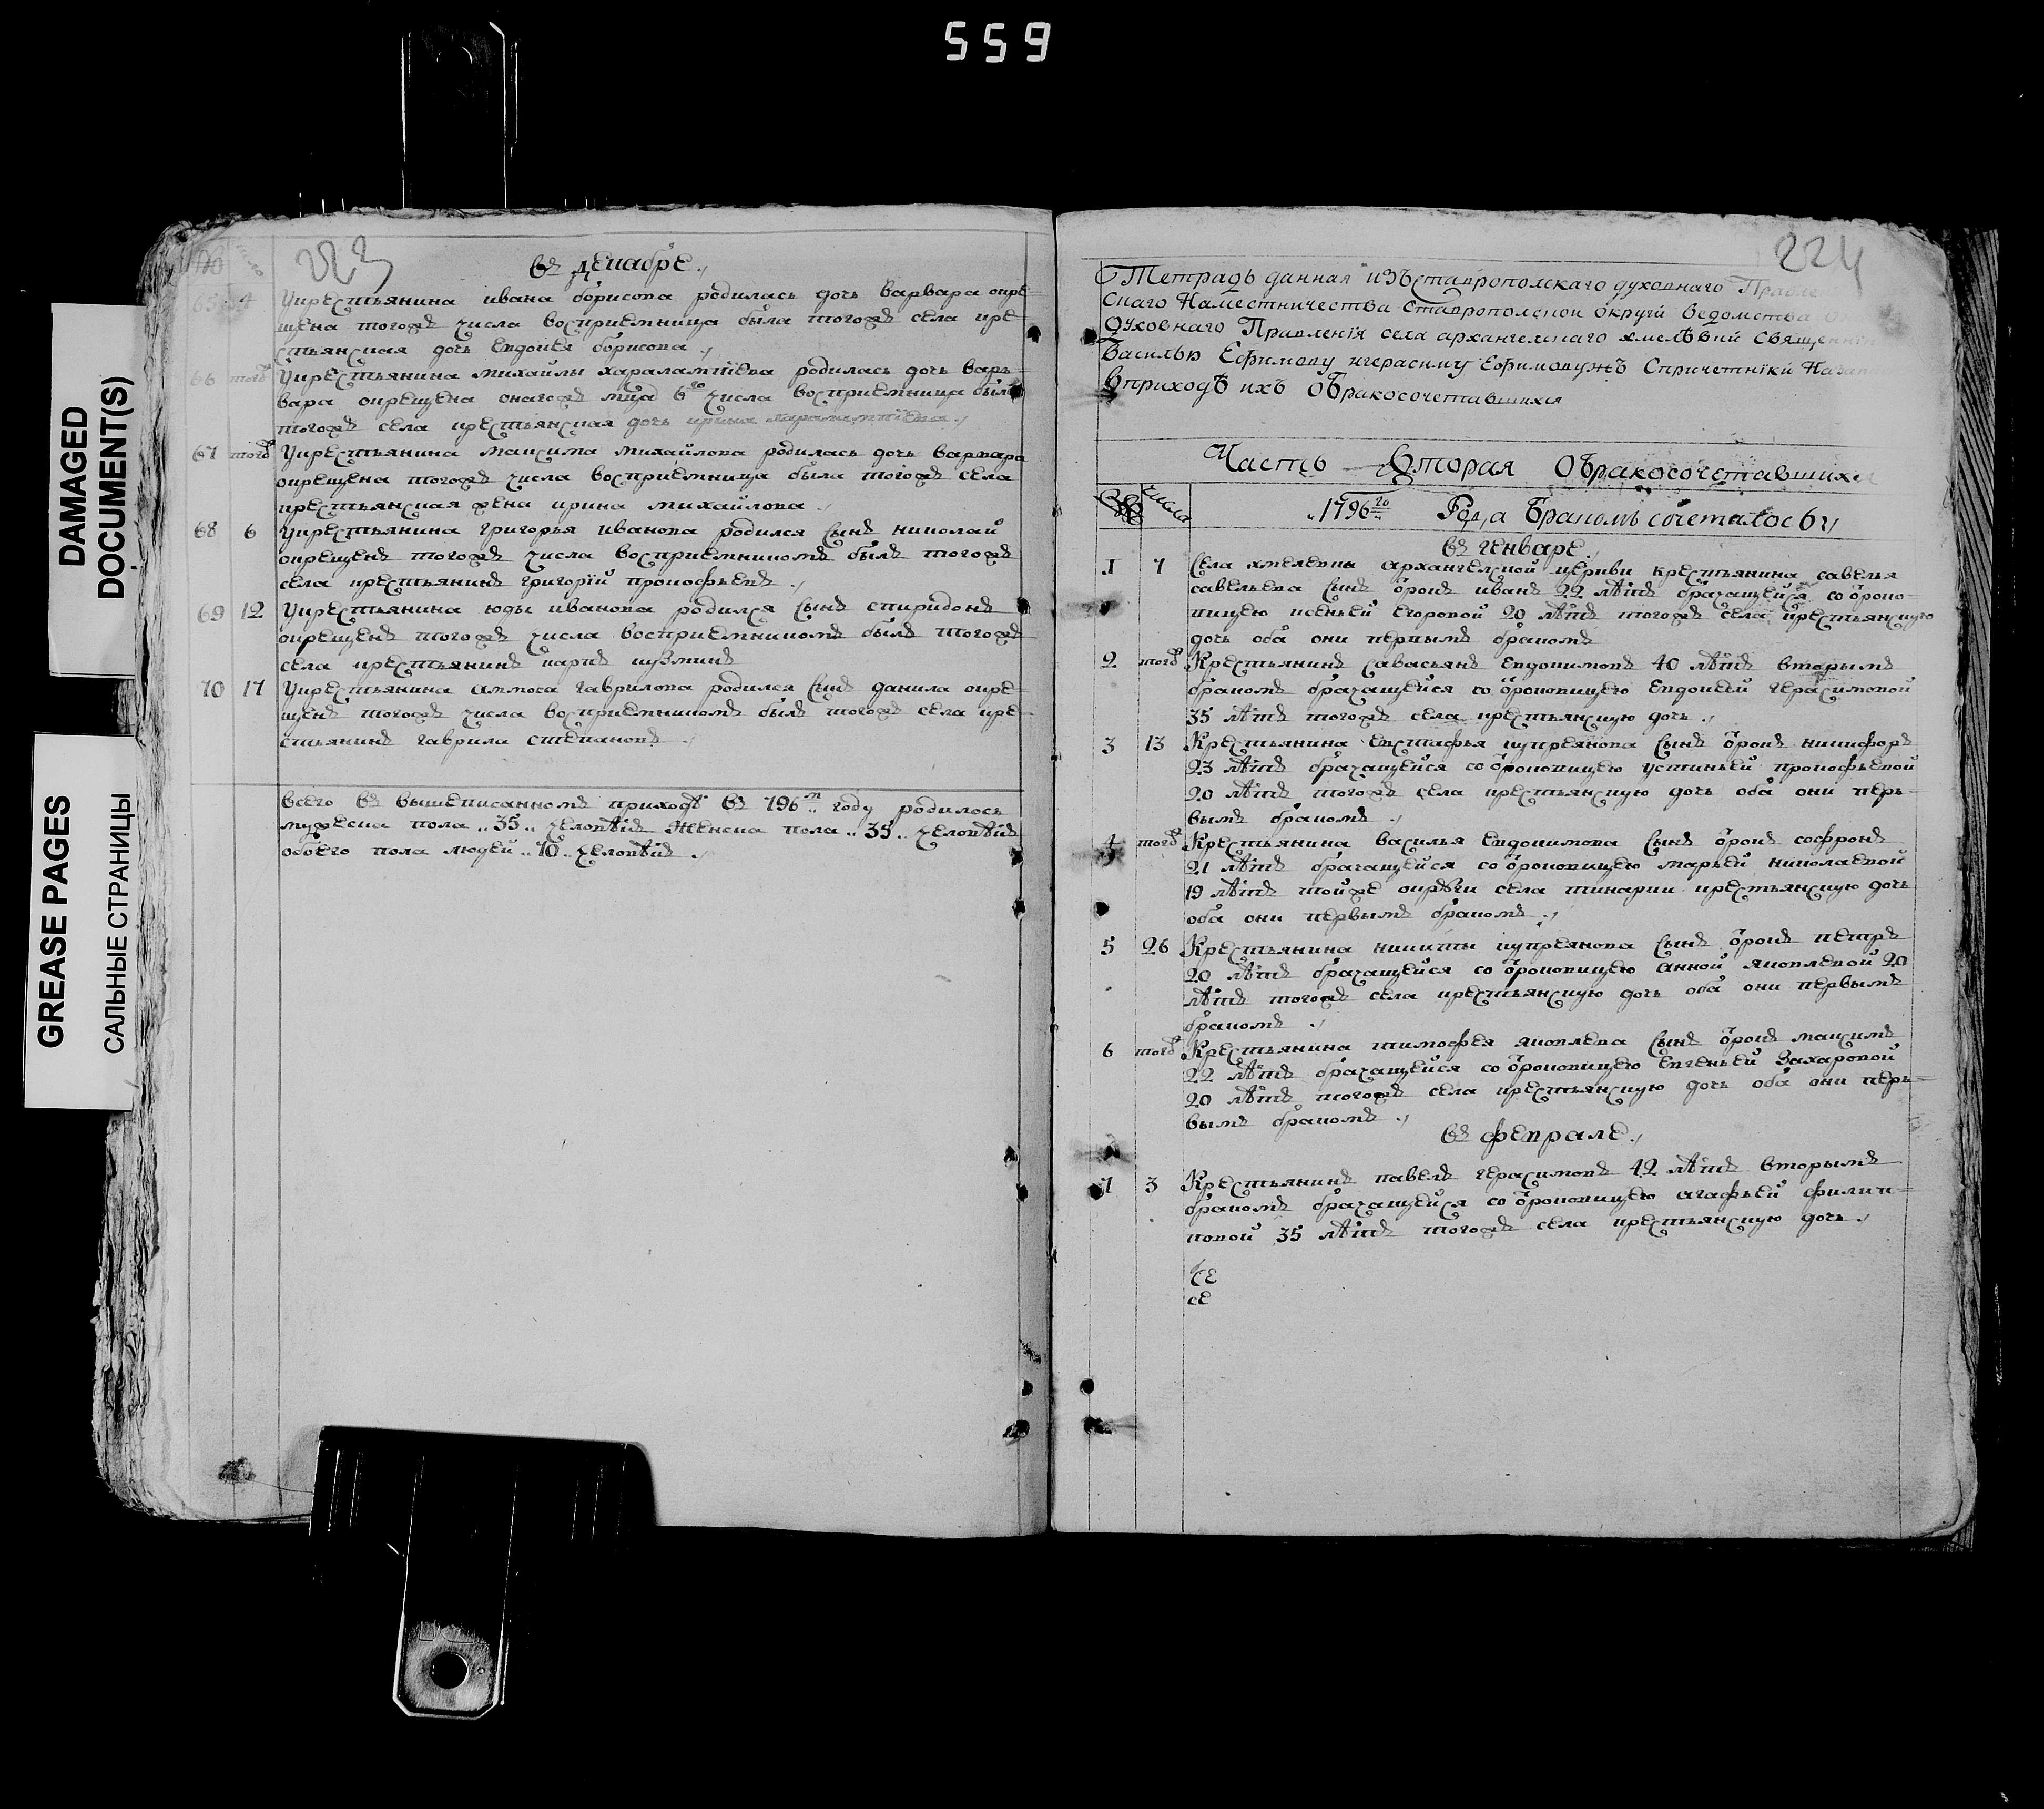 559
DAMAGED
DOCUMENT(S)
GREASE PAGES
САЛЬНЫЕ СТРАНИЦЫ
223
въ декабре
65 4 У крестьянина ивана борисова родилась дочь варвара окре-
щена тогожъ числа восприемница была тогожъ села кре-
стьянская дочь евдокея борисова
66 тогож У крестьянина михайлы харалампиева родилась дочь варъ-
вара окрещена оногожъ мца 6го числа восприемница была
тогожъ села крестьянская дочь ирина харалампïева
67 тогож У крестьянина максима михайлова родилась дочь варвара
окрещена тогожъ числа восприемница была тогожъ села
крестьянская жена ирина михайлова
68 6 У крестьянина григорья иванова родился сынъ николай
окрещенъ тогожъ числа восприемникомъ былъ тогожъ
села крестьянинъ григорïй прокофьевъ
69 12 У крестьянина юды иванова родился сынъ спиридонъ
окрещенъ тогожъ числа восприемникомъ былъ тогожъ
села крестьянинъ карпъ кузминъ
70 17 У крестьянина аммоса гаврилова родился сынъ данила окре-
щенъ тогожъ числа восприемникомъ былъ тогожъ села кре-
стьянинъ гаврила степановъ
всего въ вышеписанномъ приходѣ въ 796м году родилось
мужеска пола 35 человѣкъ женска пола 35 человѣкъ
обоего пола людей 70 человѣкъ
224
Тетрадь данная изъ ставрополскаго духовнаго Правле
скаго Наместничества Ставрополской округи ведомства
Духовнаго Правленïя села архангелскаго хмелѣвки Священни
Василью Ефимову игерасиму Ефимовужъ Спричетнïки
Вприходѣ ихъ Обракосочетавшихся
Часть Вторая Обракосочетавшихся
№ числа 1796го Года Бракомъ сочеталось
въ генваре
1 7 Села хмелевки архангелской церкви крестьянина савелья
савельева сынъ ѻрокъ иванъ 22 лѣтъ брачащейся со ѻроко-
вицею ксеньей егоровой 20 лѣтъ тогожъ села крестьянскую
дочь оба они первымъ бракомъ
2 тогож Крестьянинъ савасьянъ евдокимовъ 40 лѣтъ вторымъ
бракомъ брачащейся со ѻроковицею евдокеей герасимовой
35 лѣтъ тогожъ села крестьянскую дочь
3 13 Крестьянина евстафья купреянова сынъ ѻрокъ никифоръ
23 лѣтъ брачащейся со ѻроковицею устиньей прокофьевой
20 лѣтъ тогожъ села крестьянскую дочь оба они перъ-
вымъ бракомъ
4 тогож Крестьянина василья евдокимова сынъ ѻрокъ софронъ
21 лѣтъ брачащейся со ѻроковицею марьей николаевой
19 лѣтъ тойже округи села тинарки крестьянскую дочь
оба они первымъ бракомъ
5 26 Крестьянина никиты купреянова сынъ ѻрокъ петръ
20 лѣтъ брачащейся со ѻроковицею анной яковлевой 20
лѣтъ тогожъ села крестьянскую дочь оба они первымъ
бракомъ
6 тогож Крестьянина тимофея яковлева сынъ ѻрокъ максимъ
22 лѣтъ брачащейся со ѻроковицею евгеньей захаровой
20 лѣтъ тогожъ села крестьянскую дочь оба они перъ-
вымъ бракомъ
въ феврале
7 3 Крестьянинъ павелъ герасимовъ 42 лѣтъ вторымъ
бракомъ брачащейся со ѻроковицею агафьей филип-
повой 35 лѣтъ тогожъ села крестьянскую дочь
се
се